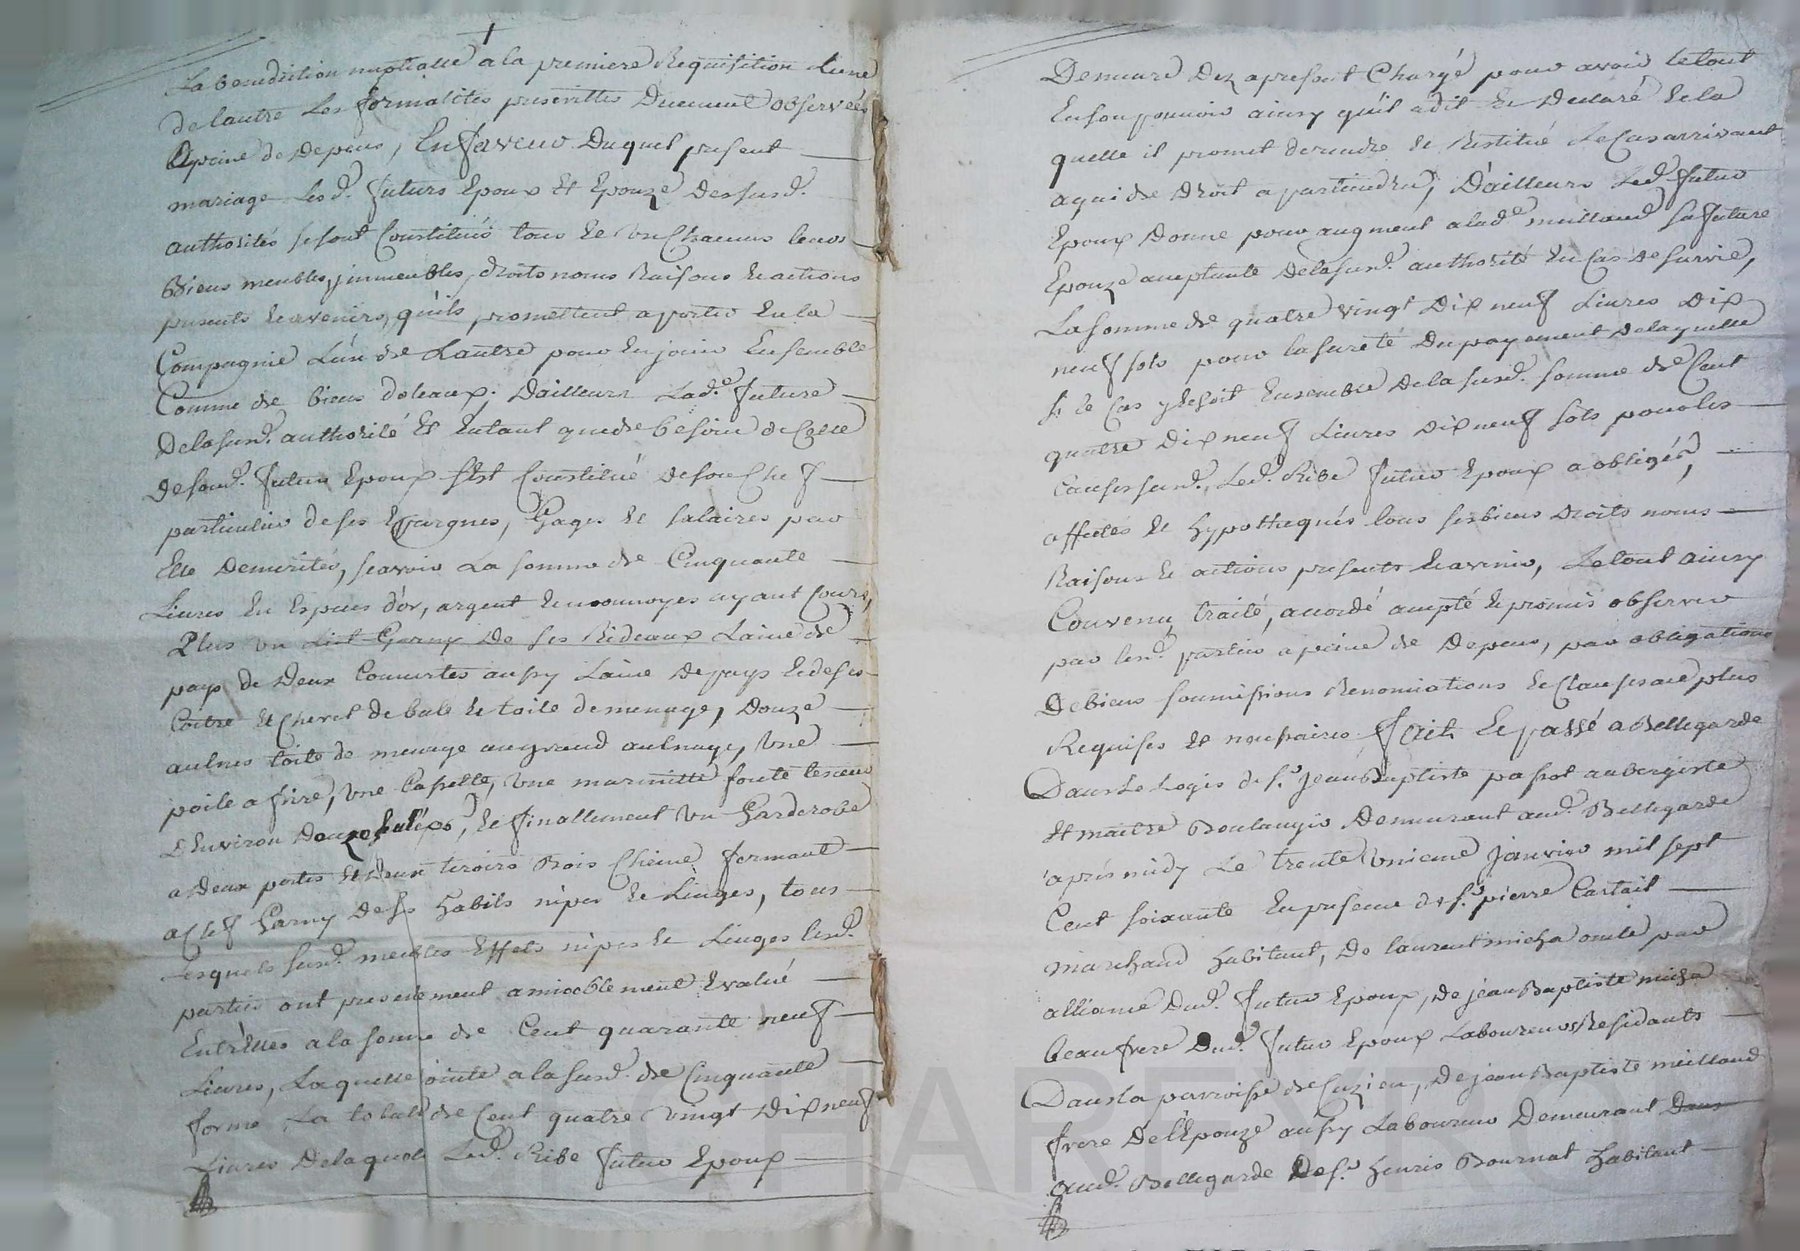 La benediction nuptialle a la premiere Requisition Lune
de lautre Les formalités prescrittes Duement observées
a peine de Depens, En faveur Duquel present
mariage Lesd. futurs Epoux Et Epouze Dessusd.
authorités se sont Constitués tous Et un Chacuns leurs
Biens meubles, immeubles, droits noms Raisons Et actions
presents Et avenirs, qu'ils promettent aporter En la
Compagnie L'un de Lautre pour En jouir Ensemble
Comme de biens doteaux; D'ailleurs Lad.e future
De la susd. authorité Et En tant que de besoin de Celle
de sond. futur Epoux S'est Constitué de son Chef
particulier de ses Epargnes, Gages Et Salaires par
Elle Demerités, scavoir La somme de Cinquante
Livres En Especes d'or, argent Et monnoyes ayant Cours,
Plus un Lict Garny De ses Rideaux Laine de
pays de Deux Couvertes aussy Laine de pays Et de ses
Coitre Et Chevet de bale Et toile de menage, Douze
aulnes toile de menage au grand aulnage, Une
poile a frire, une Cassette, une marmitte fonte teneur
D'Environ Deux, Et finallement un Garderobe
a Deux portes Et Deux tiroirs Bois Chene fermant
a Clef Garny de ses habits nipes Et Linges, tous
Lesquels susd. meubles Effets nipes Et Linges Lesd.
parties ont presentement amicablement Evalué
Entr'Elles a la somme de Cent quarante neuf
Livres, Laquelle jointe a la susd. de Cinquante
forme La totale de Cent quatre vingt Dix neuf
Livres De laquelle Led. Ribe futur Epoux
Demeure Dez apresent Chargé pour avoir le tout
En son pouvoir ainsy qu'il a dit Et Declaré Et la
quelle il promet de rendre Et Restitué Le Cas arrivant
a qui de Droit apartiendra; D'ailleurs Led. futur
Epoux Donne pour augment a lad.e meilland sa future
Epouze acceptante De la susd. authorité En Cas de survie,
La somme de quatre vingt Dix neuf Livres Dix
neuf sols pour la sureté Du payement De laquelle
si le Cas y Echoit Ensemble De la susd. somme de Cent
quatre Dix neuf Livres Dix neuf sols pour les
Causes susd. Led. Ribe futur Epoux a obligés,
affectés Et hypothequés tous ses biens Droits noms
Raisons Et actions presents Et avenir, Le tout ainsy
Convenu, traité, accordé accepté Et promis observer
par lesd. parties a peine de Depens, par obligations
De biens soumissions Renonciations Et Clauses au plus
Requises Et necessaires fait Et passé a Bellegarde
Dans Le Logis de s.r Jean Baptiste passot aubergiste
Et maitre Boulangir Demeurant aud. Bellegarde
apres midy Le trente unieme janvier mil sept
Cent soixante En presence de s.r pierre Cartail
marchand habitant, De laurent micha oncle par
alliance Dud. futur Epoux, de jean Baptiste micha
beaufrere Dud. futur Epoux Laboureurs Residants
Dans la parroisse de Cuzieu, De jean Baptiste meilland
frere De L'Epouze aussy Laboureur Demeurant Dans
aud. Bellegarde De s.r henris Bournat habitant
CHAREYR